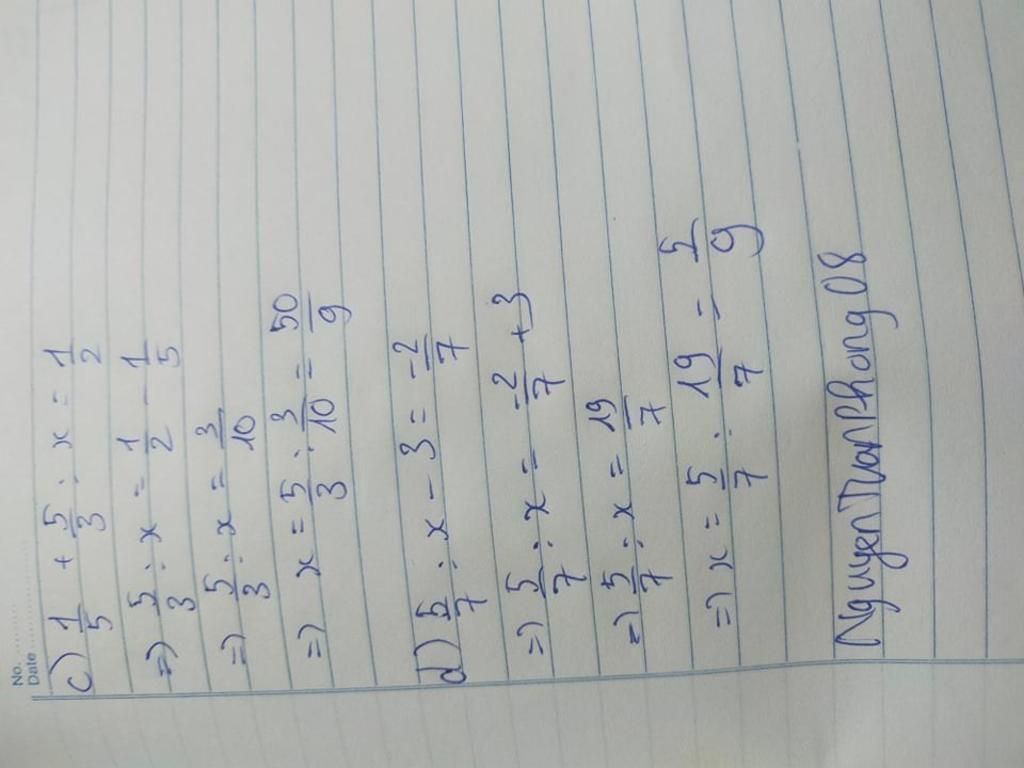 No.
Date
c) 1/5 + 5/3 : x = 1/2
=) 5/3 : x = 1/2 - 1/5
=) 5/3 : x = 3/10
=) x = 5/3 : 3/10 = 50/9
d) 5/7 : x - 3 = -2/7
=) 5/7 : x = -2/7 + 3
=) 5/7 : x = 19/7
=) x = 5/7 : 19/7 = 5/9
NguyenTranPhong08